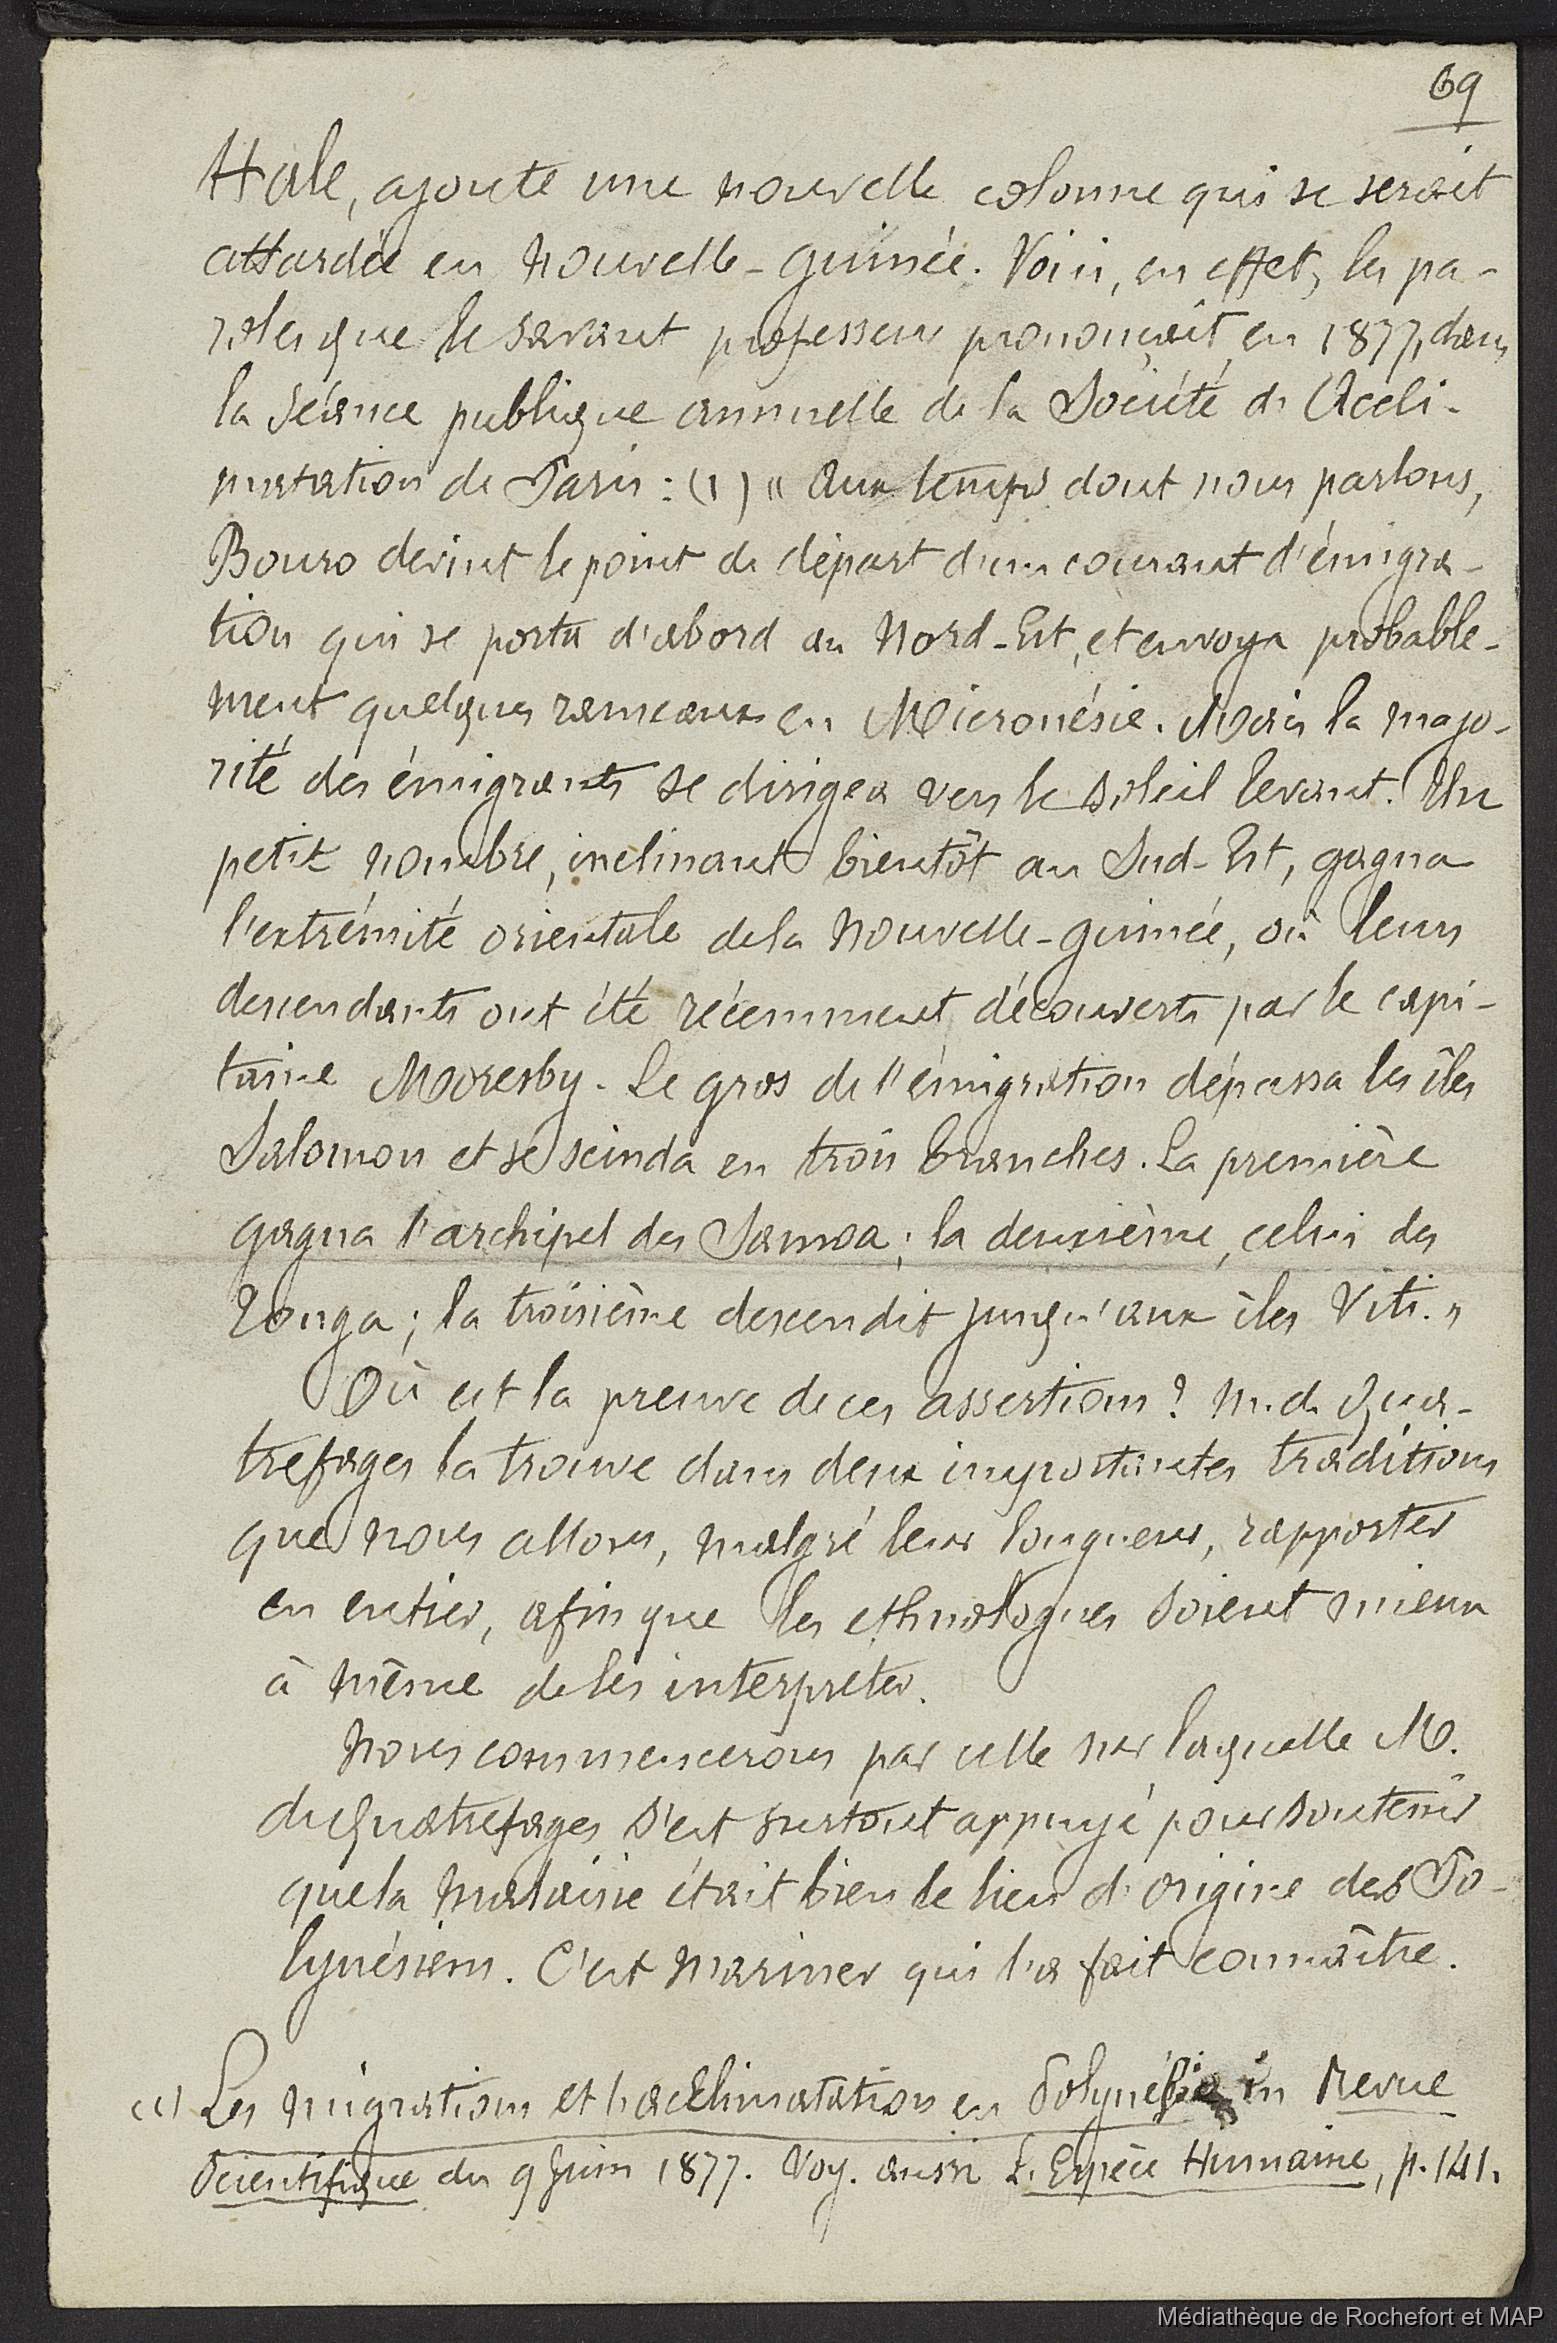 69
Hale, ajoute une nouvelle colonne qui se serait
attardée en Nouvelle-Guinée. Voici, en effet, les pa-
roles que le savant professeur prononçait, en 1877, dans
la séance publique annuelle de la Société d'Accli-
matation de Paris : (1) « Aux temps dont nous parlons,
Bouro devint le point de départ d'un courant d'émigra-
tion qui se porta d'abord au Nord-Est, et envoya probable-
ment quelques rameaux en Micronésie. Mais la majo-
rité des émigrants se dirigea vers le soleil levant. Un
petit nombre, inclinant bientôt au Sud-Est, gagna
l'extrémité orientale de la Nouvelle-Guinée, où leurs
descendants ont été récemment découverts par le capi-
taine Moresby. Le gros de l'émigration dépassa les îles
Salomon et se scinda en trois branches. La première
gagna l'archipel des Samoa ; la deuxième, celui des
Tonga ; la troisième descendit jusqu'aux îles Viti. »
Où est la preuve de ces assertions ? M. de Qua-
trefages la trouve dans deux importantes traditions
que nous allons, malgré leur longueur, rapporter
en entier, afin que les ethnologues soient mieux
à même de les interpréter.
Nous commencerons par celle sur laquelle M.
de Quatrefages s'est surtout appuyé pour soutenir
que la Malaisie était bien le lieu d'origine des Po-
lynésiens. C'est Mariner qui l'a fait connaître.
(1) Les migrations et l'acclimatation en Polynésie in Revue
Scientifique du 9 Juin 1877. Voy. aussi L'Espèce Humaine, p. 141.
Médiathèque de Rochefort et MAP